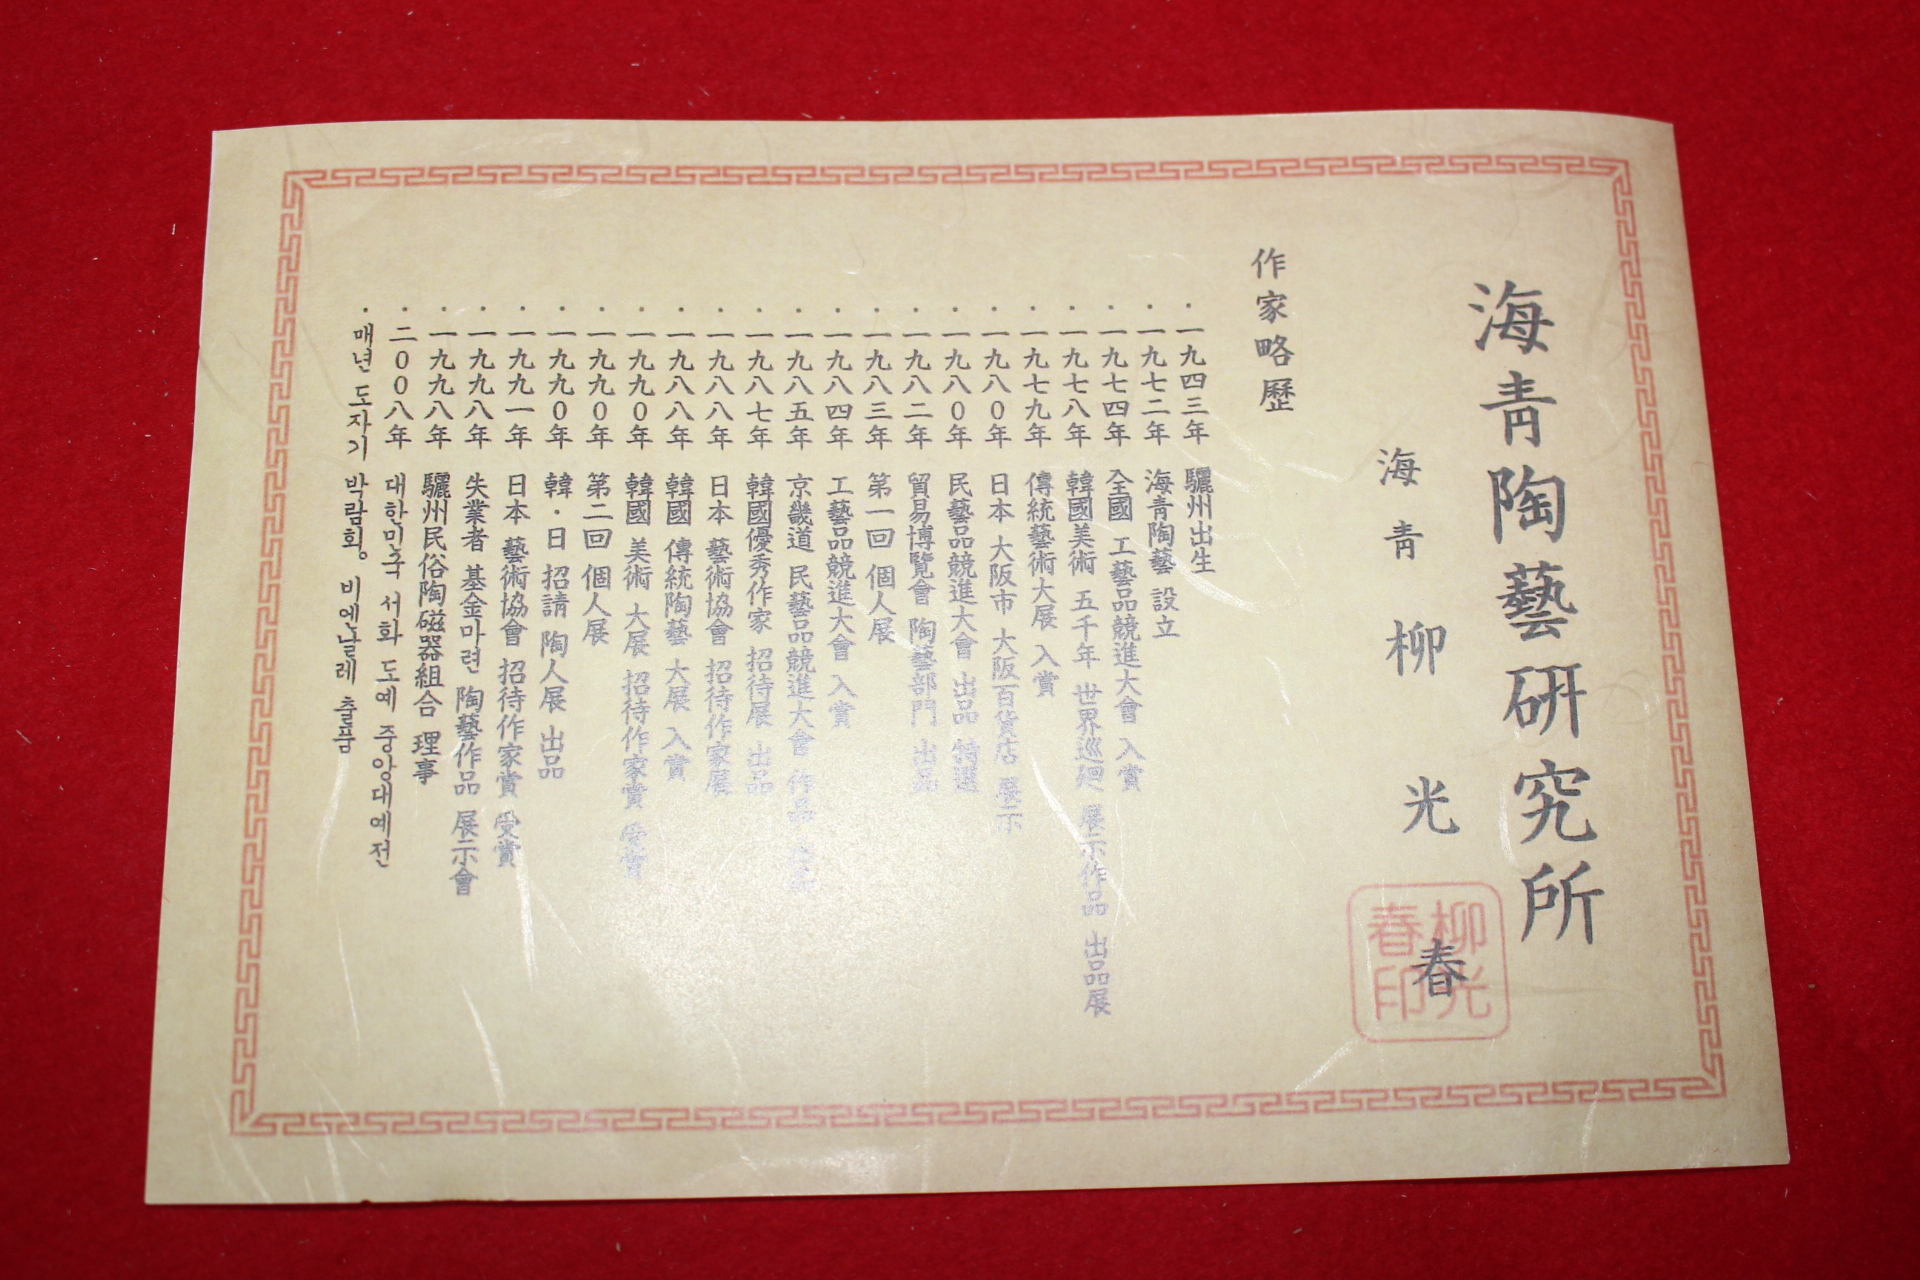 海靑陶藝硏究所
海靑 柳光春
柳光春印
作家略歷
· 一九四三年 驪州出生
· 一九七二年 海靑陶藝 設立
· 一九七四年 全國 工藝品競進大會 入賞
· 一九七八年 韓國美術 五千年 世界巡廻 展示作品 出品展
· 一九七九年 傳統藝術大展 入賞
· 一九八0年 日本 大阪市 大阪百貨店 展示
· 一九八0年 民藝品競進大會 出品 特選
· 一九八二年 貿易博覽會 陶藝部門 出品
· 一九八三年 第一回 個人展
· 一九八四年 工藝品競進大會 入賞
· 一九八五年 京畿道 民藝品競進大會 作品
· 一九八七年 韓國優秀作家 招待展 出品
· 一九八八年 日本 藝術協會 招待作家展
· 一九八八年 韓國 傳統陶藝 大展 入賞
· 一九九0年 韓國 美術 大展 招待作家賞 受賞
· 一九九0年 第二回 個人展
· 一九九0年 韓·日 招請 陶人展 出品
· 一九九一年 日本 藝術協會 招待作家賞 受賞
· 一九九八年 失業者 基金마련 陶藝作品 展示會
· 一九九八年 驪州民俗陶磁器組合 理事
· 二00八年 대한민국 서화 도예 중앙대예전
· 매년 도자기 박람회, 비엔날레 출품